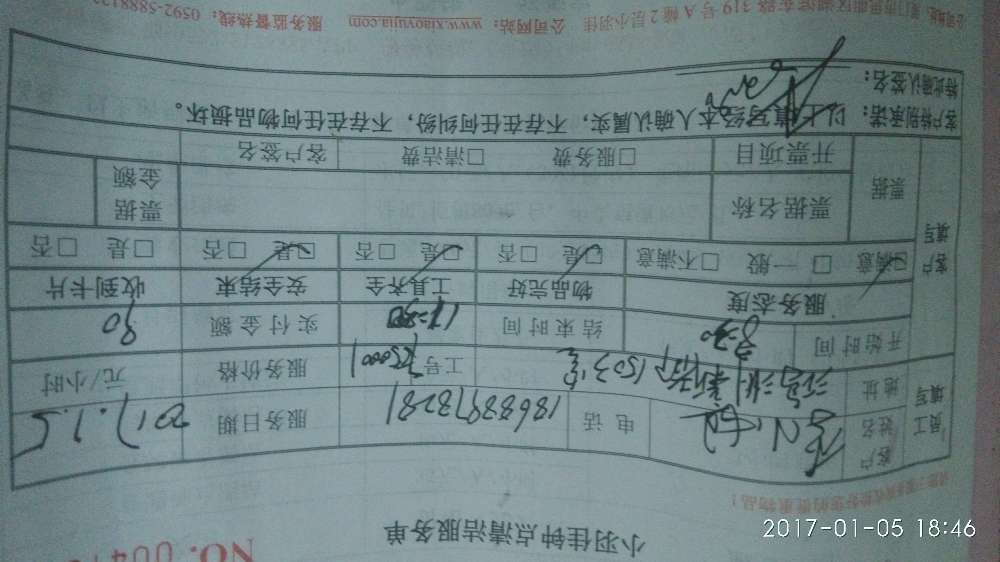 NO. 004
小羽佳钟点清洁服务单
客户姓名 电话 18689878281 服务日期 2017.1.5
员工填写 地址 1503室 工号 服务价格 元/小时
开始时间 8:30 结束时间 实付金额 90
服务态度 物品完好 工具齐全 安全结束 收到卡片
☑满意 □一般 □不满意 ☑是 □否 ☑是 □否 ☑是 □否 □是 □否
客户填写 票据 票据名称 票据金额
开票项目 □服务费 □清洁费 客户签名
客户特别承诺：以上填写经本人确认属实，不存在任何纠纷，不存在任何物品损坏。
特此确认签名：
319号A幢2层小羽佳 公司网站：www.xiaoyujia.com 服务监督热线：0592-5888122
2017-01-05 18:46